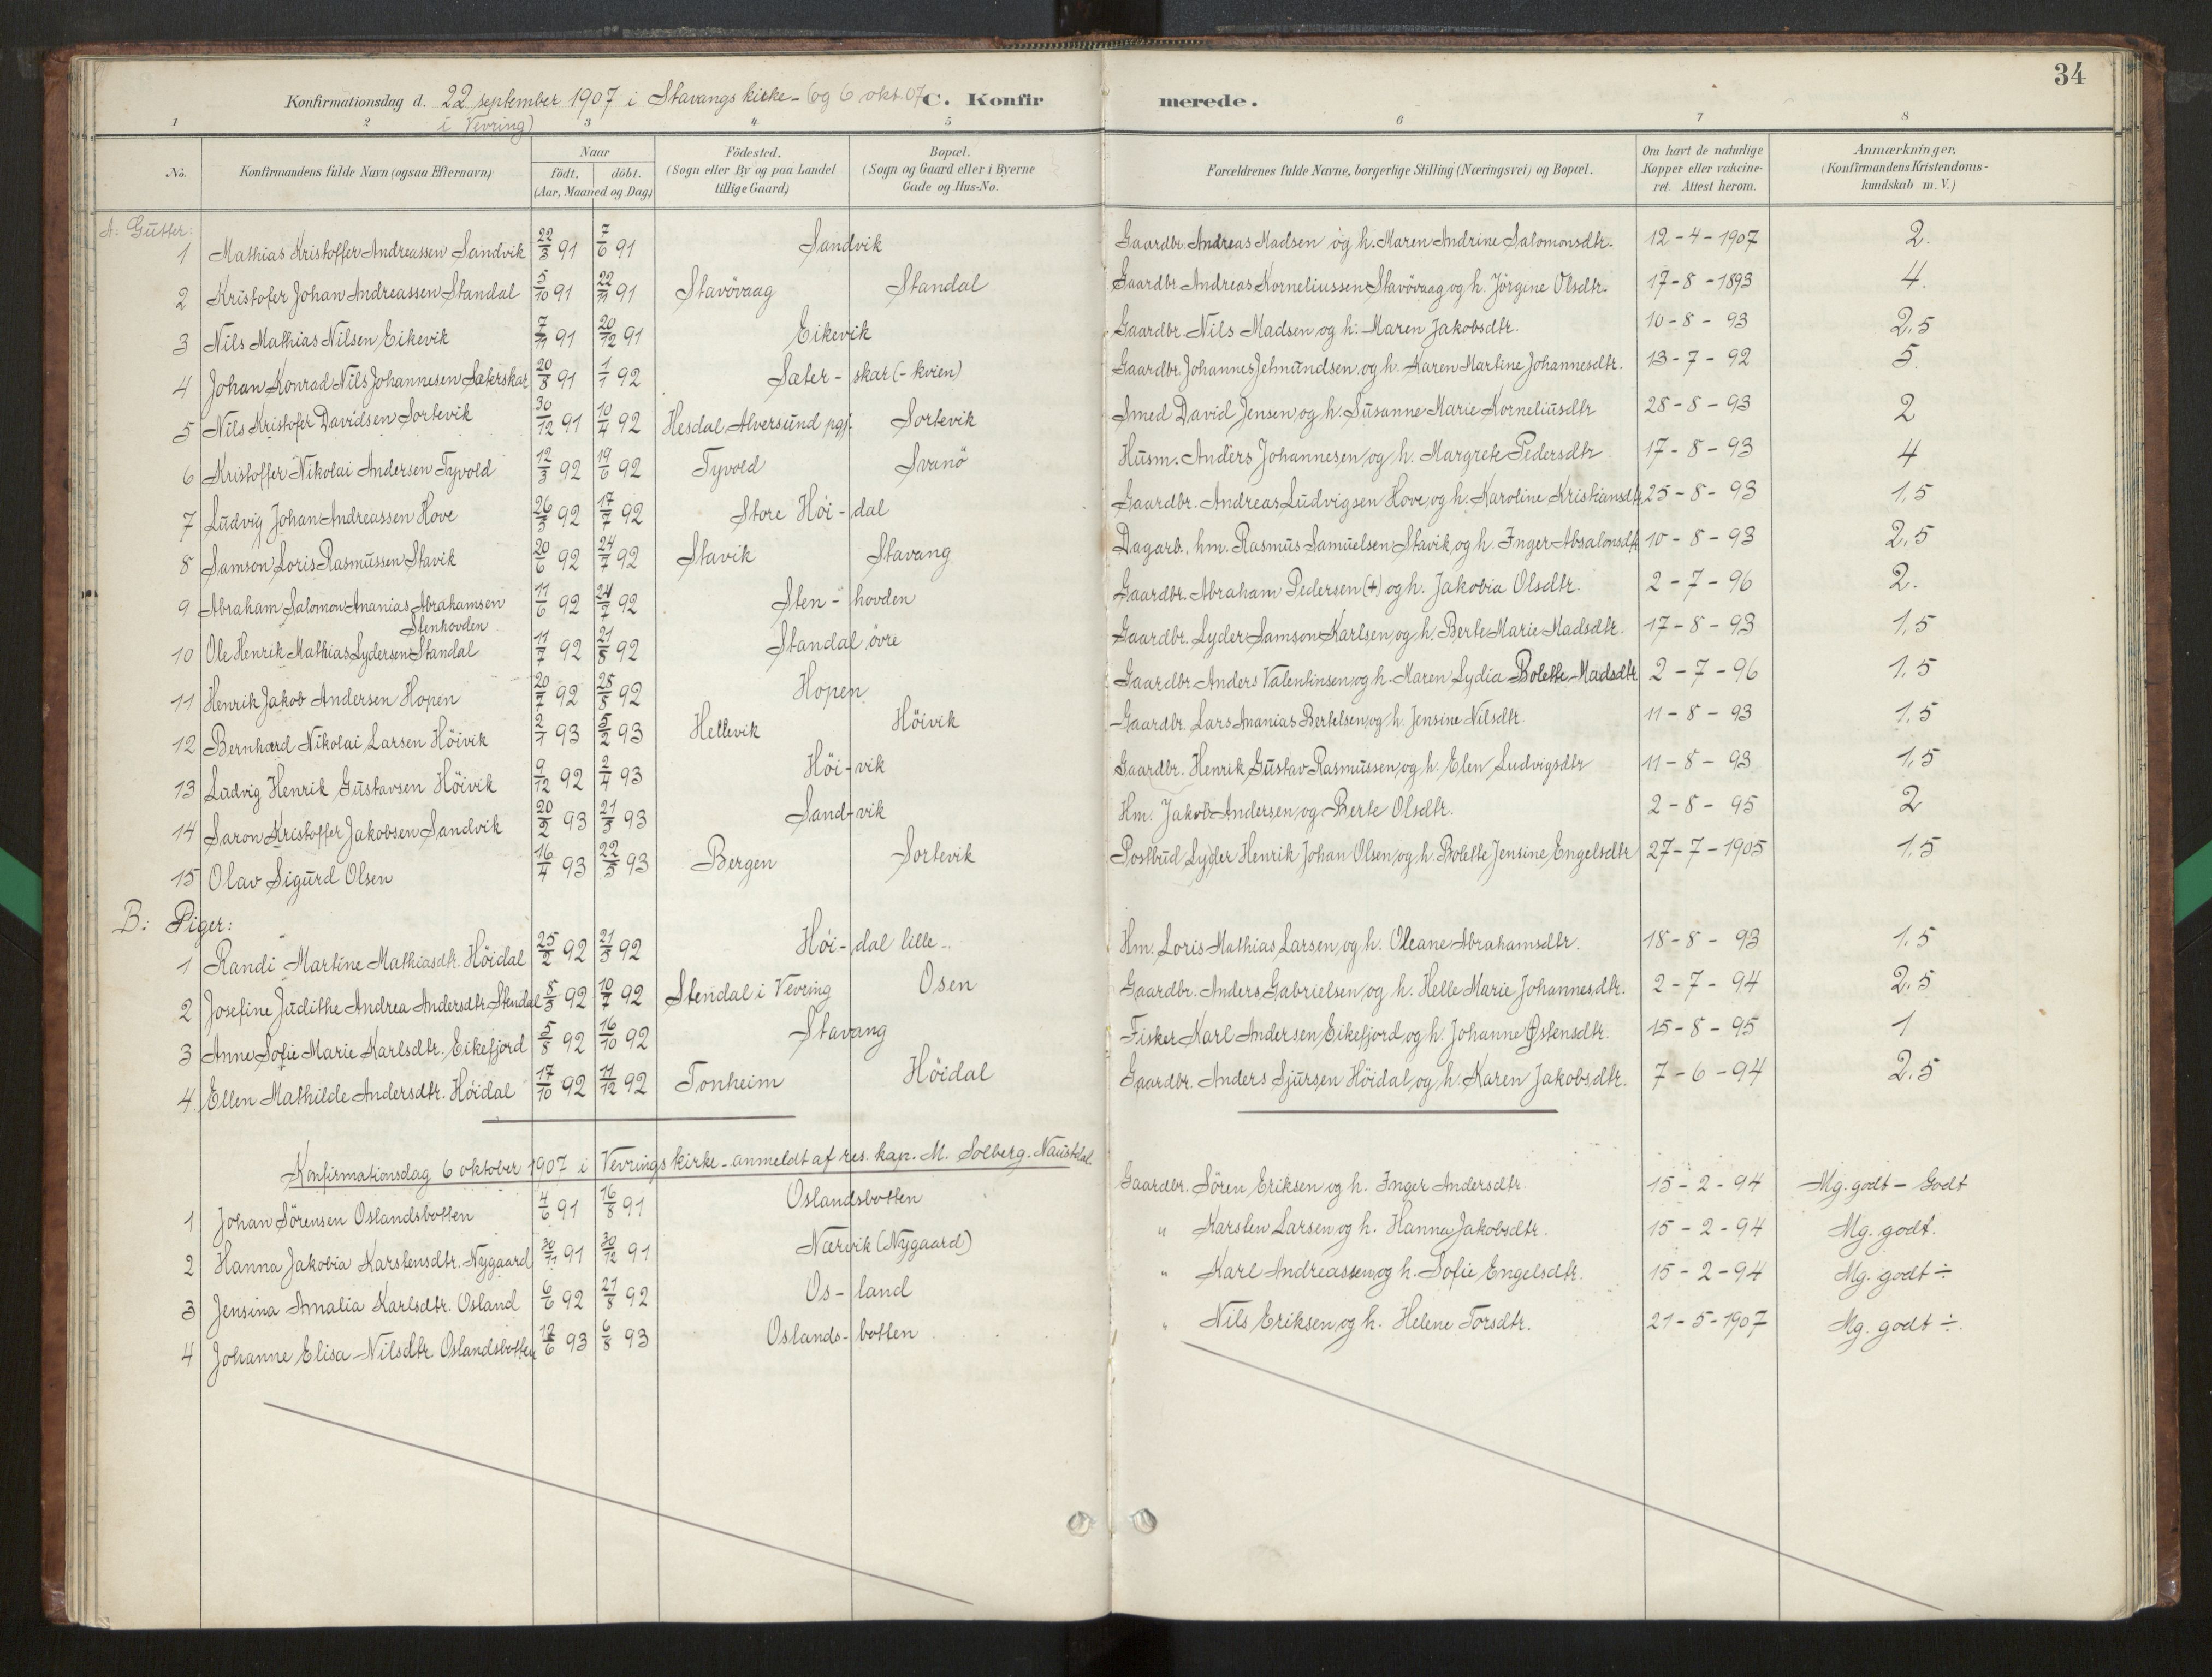 34
Konfirmationsdag d. 22 september 1907 i Stavangs kirke - (og 6 okt. 07 C. Konfirmerede.
i Vevring)
1 2 3 4 5 6 7 8
No. Konfirmandens fulde Navn (ogsaa Efternavn) Naar födt. döbt. (Aar, Maaned og Dag) Födested. (Sogn eller By og paa Landet tillige Gaard) Bopæl. (Sogn og Gaard eller i Byerne Gade og Hus-No. Forældrenes fulde Navne, borgerlige Stilling (Næringsvei) og Bopæl. Om havt de naturlige Kopper eller vakcineret. Attest herom. Anmærkninger. (Konfirmandens Kristendomskundskab m. V.)
A: Gutter:
1 Mathias Kristoffer Andreassen Sandvik 22/3 91 7/6 91 Sandvik Gaardbr. Andreas Madsen og h. Maren Andrine Salomonsdtr. 12-4-1907 2.
2 Kristofer Johan Andreassen Standal 5/10 91 22/11 91 Stavövaag Standal Gaardbr. Andreas Korneliussen Stavövaag og h. Jörgine Olsdtr. 17-8-1893 4.
3 Nils Mathias Nilsen Eikevik 7/11 91 20/12 91 Eikevik Gaardbr. Nils Madsen og h. Maren Jakobsdtr. 10-8-93 2,5
4 Johan Konrad Nils Johannesen Sæterskar 20/8 91 1/1 92 Sæter-skar (-kvien) Gaardbr. Johannes Jetmundsen og h. Karen Martine Johannesdtr. 13-7-92 5.
5 Nils Kristofer Davidsen Sortevik 30/12 91 10/4 92 Hesdal Alversund pgj. Sortevik Smed David Jensen og h. Susanne Marie Korneliusdtr 28-8-93 2
6 Kristoffer Nikolai Andersen Tyvold 12/3 92 19/6 92 Tyvold Svanö Husm. Anders Johannesen og h. Margrete Pedersdtr 17-8-93 4
7 Ludvig Johan Andreassen Hove 26/3 92 17/7 92 Store Höi-dal Gaardbr. Andreas Ludvigsen Hove og h. Karoline Kristiansdtr 25-8-93 1,5
8 Samson Loris Rasmussen Stavik 20/6 92 24/7 92 Stavik Stavang Dagarb. hm. Rasmus Samuelsen Stavik og h. Inger Absalonsdtr 10-8-93 2,5
9 Abraham Salomon Ananias Abrahamsen Stenhovden 11/6 92 24/7 92 Sten-hovden Gaardbr. Abraham Pedersen (+) og h. Jakobia Olsdtr. 2-7-96 2.
10 Ole Henrik Mathias Lydersen Standal 11/7 92 21/8 92 Standal övre Gaardbr. Lyder Samson Karlsen og h. Berte Marie Madsdtr. 17-8-93 1,5
11 Henrik Jakob Andersen Hopen 20/7 92 28/8 92 Hopen Gaardbr. Anders Valentinsen og h. Maren Lydia Bolette Madsdtr 2-7-96 1,5
12 Bernhard Nikolai Larsen Höivik 2/1 93 5/2 93 Hellevik Höivik Gaardbr. Lars Ananias Bertelsen og h. Jensine Nilsdtr. 11-8-93 1,5
13 Ludvig Henrik Gustavsen Höivik 9/12 92 2/4 93 Höi-vik Gaardbr. Henrik Gustav Rasmussen og h. Elen Ludvigsdtr 11-8-93 1,5
14 Saron Kristoffer Jakobsen Sandvik 20/2 93 21/5 93 Sand-vik Hm. Jakob Andersen og Berte Olsdtr. 2-8-95 2
15 Olav Sigurd Olsen 16/4 93 22/5 93 Bergen Sortevik Postbud Lyder Henrik Johan Olsen og h. Bolette Jensine Engelsdtr 27-7-1905 1,5
B: Piger:
1 Randi Martine Mathiasdtr. Höidal 25/2 92 21/3 92 Höi-dal lille Hm. Loris Mathias Larsen og h. Oleane Abrahamsdtr. 18-8-93 1,5
2 Josefine Judithe Andrea Andersdtr. Stendal 8/3 92 10/7 92 Stendal i Vevring Osen Gaardbr. Anders Gabrielsen og h. Helle Marie Johannesdtr. 2-7-94 2,5
3 Anne Sofie Marie Karlsdtr. Eikefjord 5/8 92 16/10 92 Stavang Fisker Karl Andersen Eikefjord og h. Johanne Østensdtr. 15-8-95 1
4 Ellen Mathilde Andersdtr. Höidal 17/10 92 11/12 92 Tonheim Höidal Gaardbr. Anders Sjursen Höidal og h. Karen Jakobsdtr. 7-6-94 2,5
Konfirmationsdag 6 oktober 1907 i Vevrings kirke - anmeldt af res. kap. M. Solberg. Naustdal.
1 Johan Sörensen Oslandsbotten 4/6 91 16/8 91 Oslandsbotten Gaardbr. Sören Eriksen og h. Inger Andersdtr. 15-2-94 Mg. godt - Godt
2 Hanna Jakobia Karstensdtr. Nygaard 30/11 91 30/12 91 Nærvik (Nygaard) " Karsten Larsen og h. Hanna Jakobsdtr. 15-2-94 Mg. godt.
3 Jensina Amalia Karlsdtr. Osland 6/6 92 21/8 92 Os-land " Karl Andreassen og h. Sofie Engelsdtr. 15-2-94 Mg. godt ÷
4 Johanne Elisa Nilsdtr. Oslandsbotten 12/6 93 6/8 93 Oslands-botten " Nils Eriksen og h. Helene Torsdtr. 21-5-1907 Mg. godt ÷.